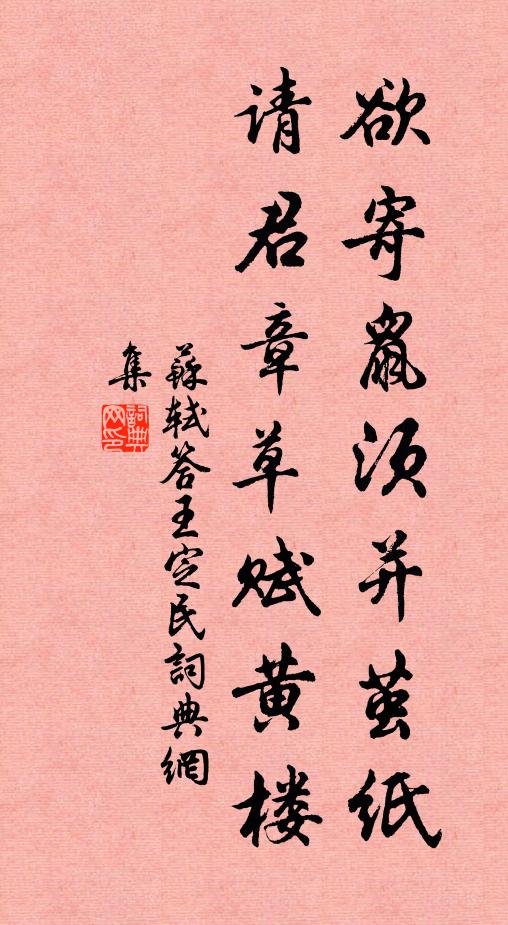 欲寄鼠须并茧纸
请君章草赋黄楼
蘇轼答王定民詞典網
集
詞典网印